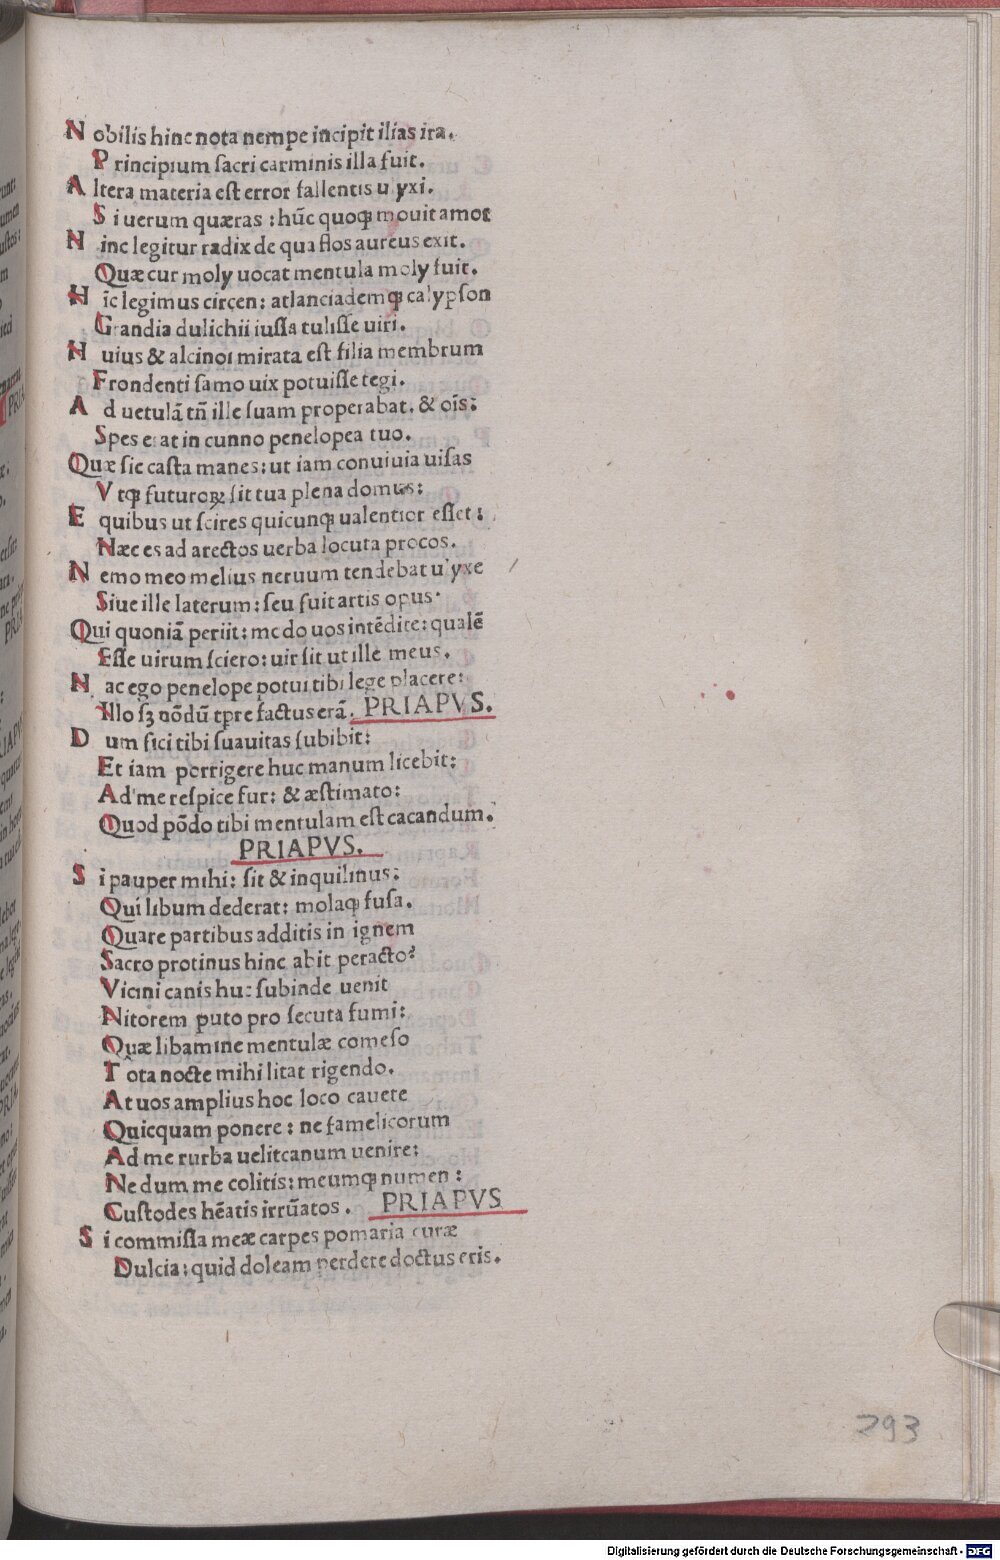 N obilis hinc nota nempe incipit ilias ira.
P rincipium sacri carminis illa fuit.
A ltera materia est error fallentis ulyxi.
S i uerum quæras : hūc quoqꝫ mouit amor
H inc legitur radix de qua flos aureus exit.
Quæ cur moly uocat mentula moly fuit.
H īc legimus circen: atlanciademqꝫ calypson
Grandia dulichii iussa tulisse uiri.
H uius & alcinoi mirata est filia membrum
Frondenti samo uix potuisse tegi.
A d uetulā tn̄ ille suam properabat. & oīs:
Spes erat in cunno penelopea tuo.
Quæ sic casta manes: ut iam conuiuia uisas
V tqꝫ futuroꝝ sit tua plena domus:
E quibus ut scires quicunqꝫ ualentior esset:
Hæc es ad arectos uerba locuta procos.
N emo meo melius neruum tendebat ulyxe
Siue ille laterum: seu fuit artis opus.
Qui quoniā periit: mo do uos intēdite: qualē
Esse uirum sciero: uir sit ut ille meus.
H ac ego penelope potui tibi lege placere:
Illo sꝫ nōdū tpre factus erā. PRIAPVS.
D um sici tibi suauitas subibit:
Et iam porrigere huc manum licebit:
Ad me respice fur: & æstimato:
Quod pōdo tibi mentulam est cacandum.
PRIAPVS.
S i pauper mihi: sit & inquilinus:
Qui libum dederat: molaqꝫ fusa.
Quare partibus additis in ignem
Sacro protinus hinc abit peracto?
Vicini canis huc subinde uenit
Nitorem puto pro secuta fumi:
Quæ libamine mentulæ comeso
T ota nocte mihi litat rigendo.
At uos amplius hoc loco cauete
Quicquam ponere : ne famelicorum
Ad me turba uelit canum uenire:
Ne dum me colitis: meumqꝫ numen :
Custodes hēatis irrūatos. PRIAPVS
S i commissa meæ carpes pomaria curæ
Dulcia: quid doleam perdere doctus eris.
293
Digitalisierung gefördert durch die Deutsche Forschungsgemeinschaft - DFG